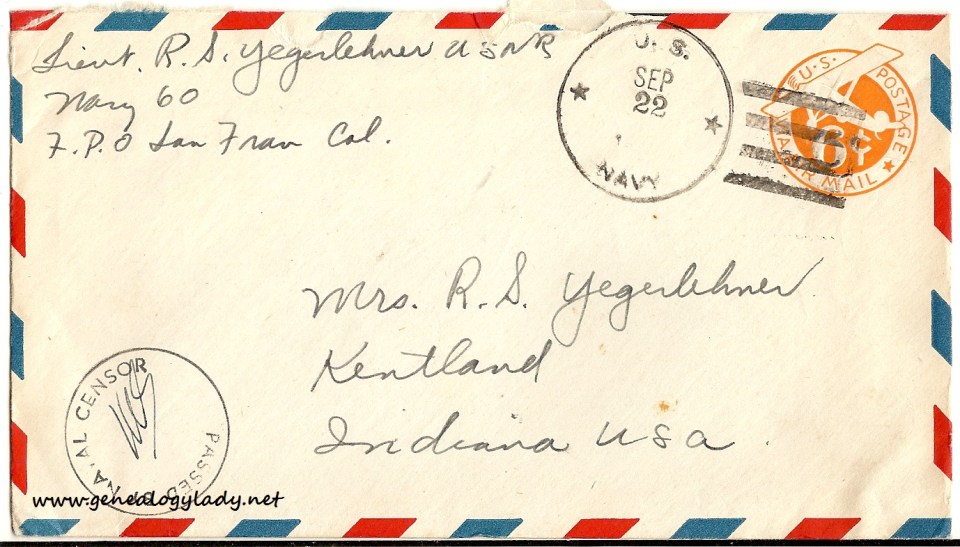 Lieut. R. S. Yegerlehner USNR
Navy 60
F.P.O San Fran Cal.
U. S.
SEP
22
NAVY
U.S. POSTAGE
6¢
AIR MAIL
Mrs. R. S. Yegerlehner
Kentland
Indiana USA.
PASSED BY NAVAL CENSOR
www.genealogylady.net